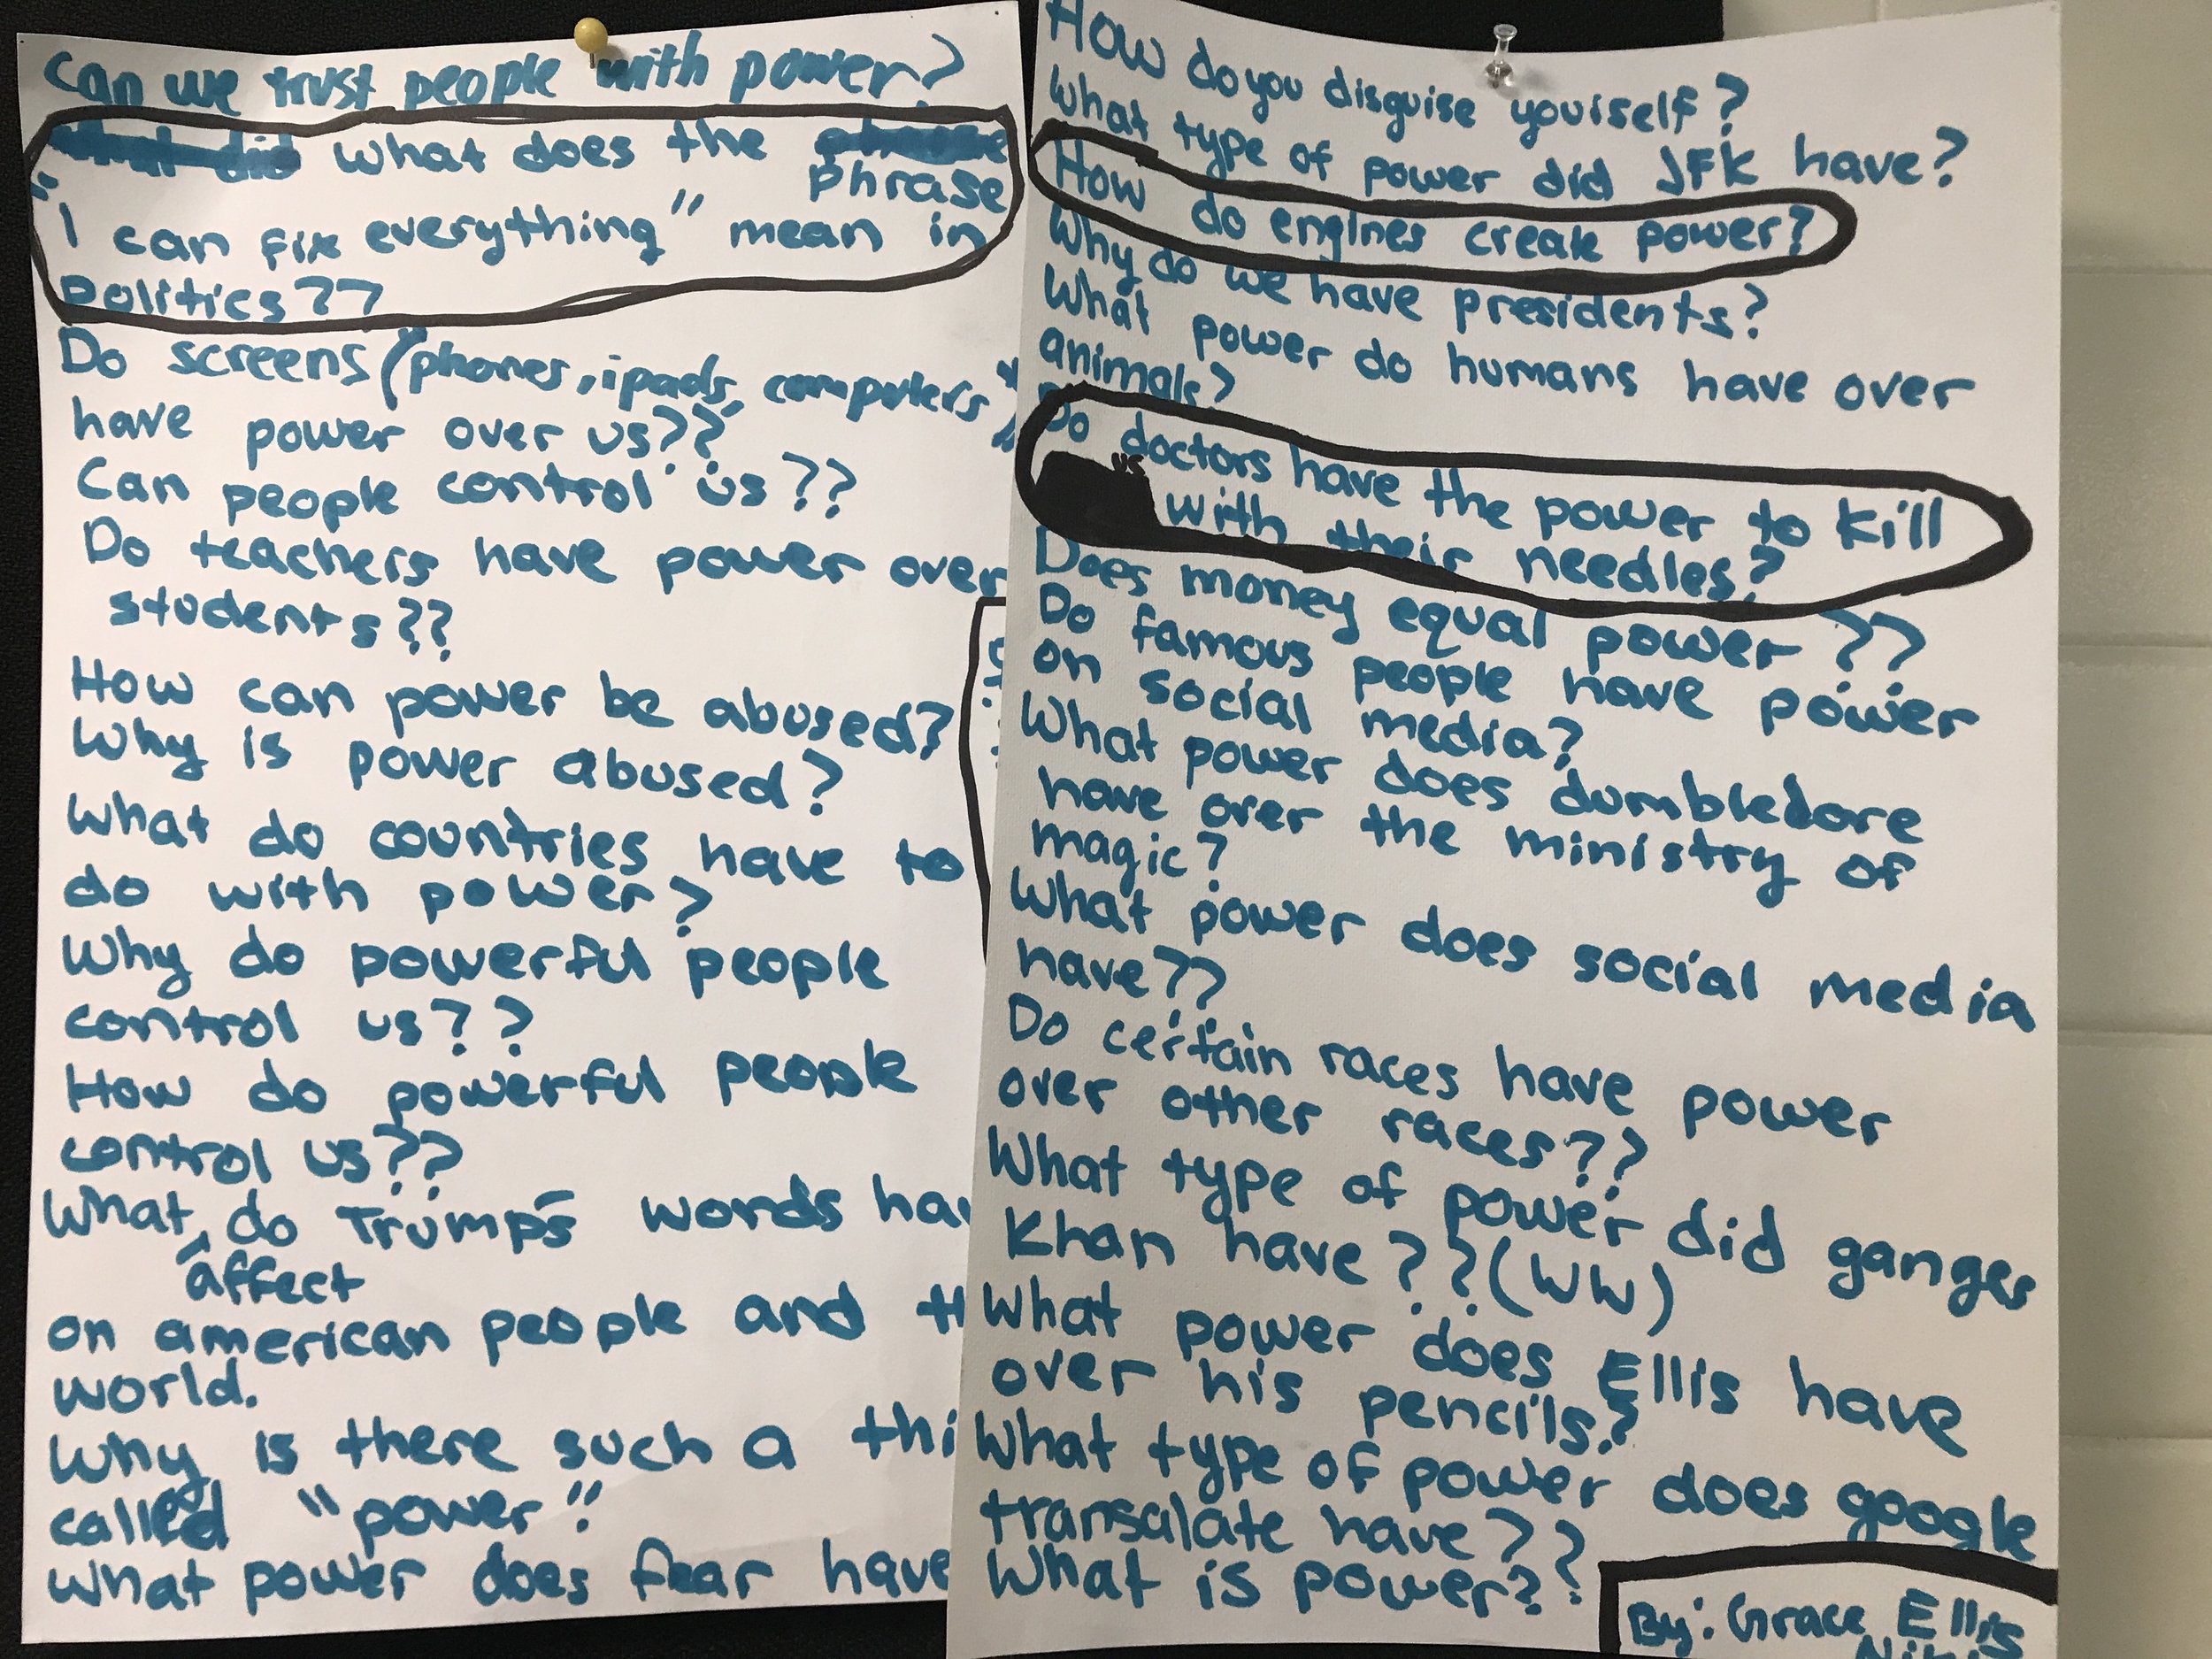 Can we trust people with power?
What does the
phrase
"I can fix everything" mean in
Politics??
Do screens (phones, ipads, computers)
have power over us??
Can people control us??
Do teachers have power over
students??
How can power be abused?
Why is power abused?
What do countries have to
do with power?
Why do powerful people
control us??
How do powerful people
control us??
What do Trumps words
affect
on american people and
world.
Why is there such a
called "power"
What power does fear have
How do you disguise yourself?
What type of power did JFK have?
How do engines create power?
Why do we have presidents?
What power do humans have over
animals?
Do doctors have the power to kill
us with their needles?
Does money equal power??
Do famous people have power
on social media?
What power does dumbledore
have over the ministry of
magic?
What power does social media
have??
Do certain races have power
over other races??
What type of power did ganges
Khan have??(WW)
What power does Ellis have
over his pencils?
What type of power does google
transalate have??
What is power??
By: Grace Ellis